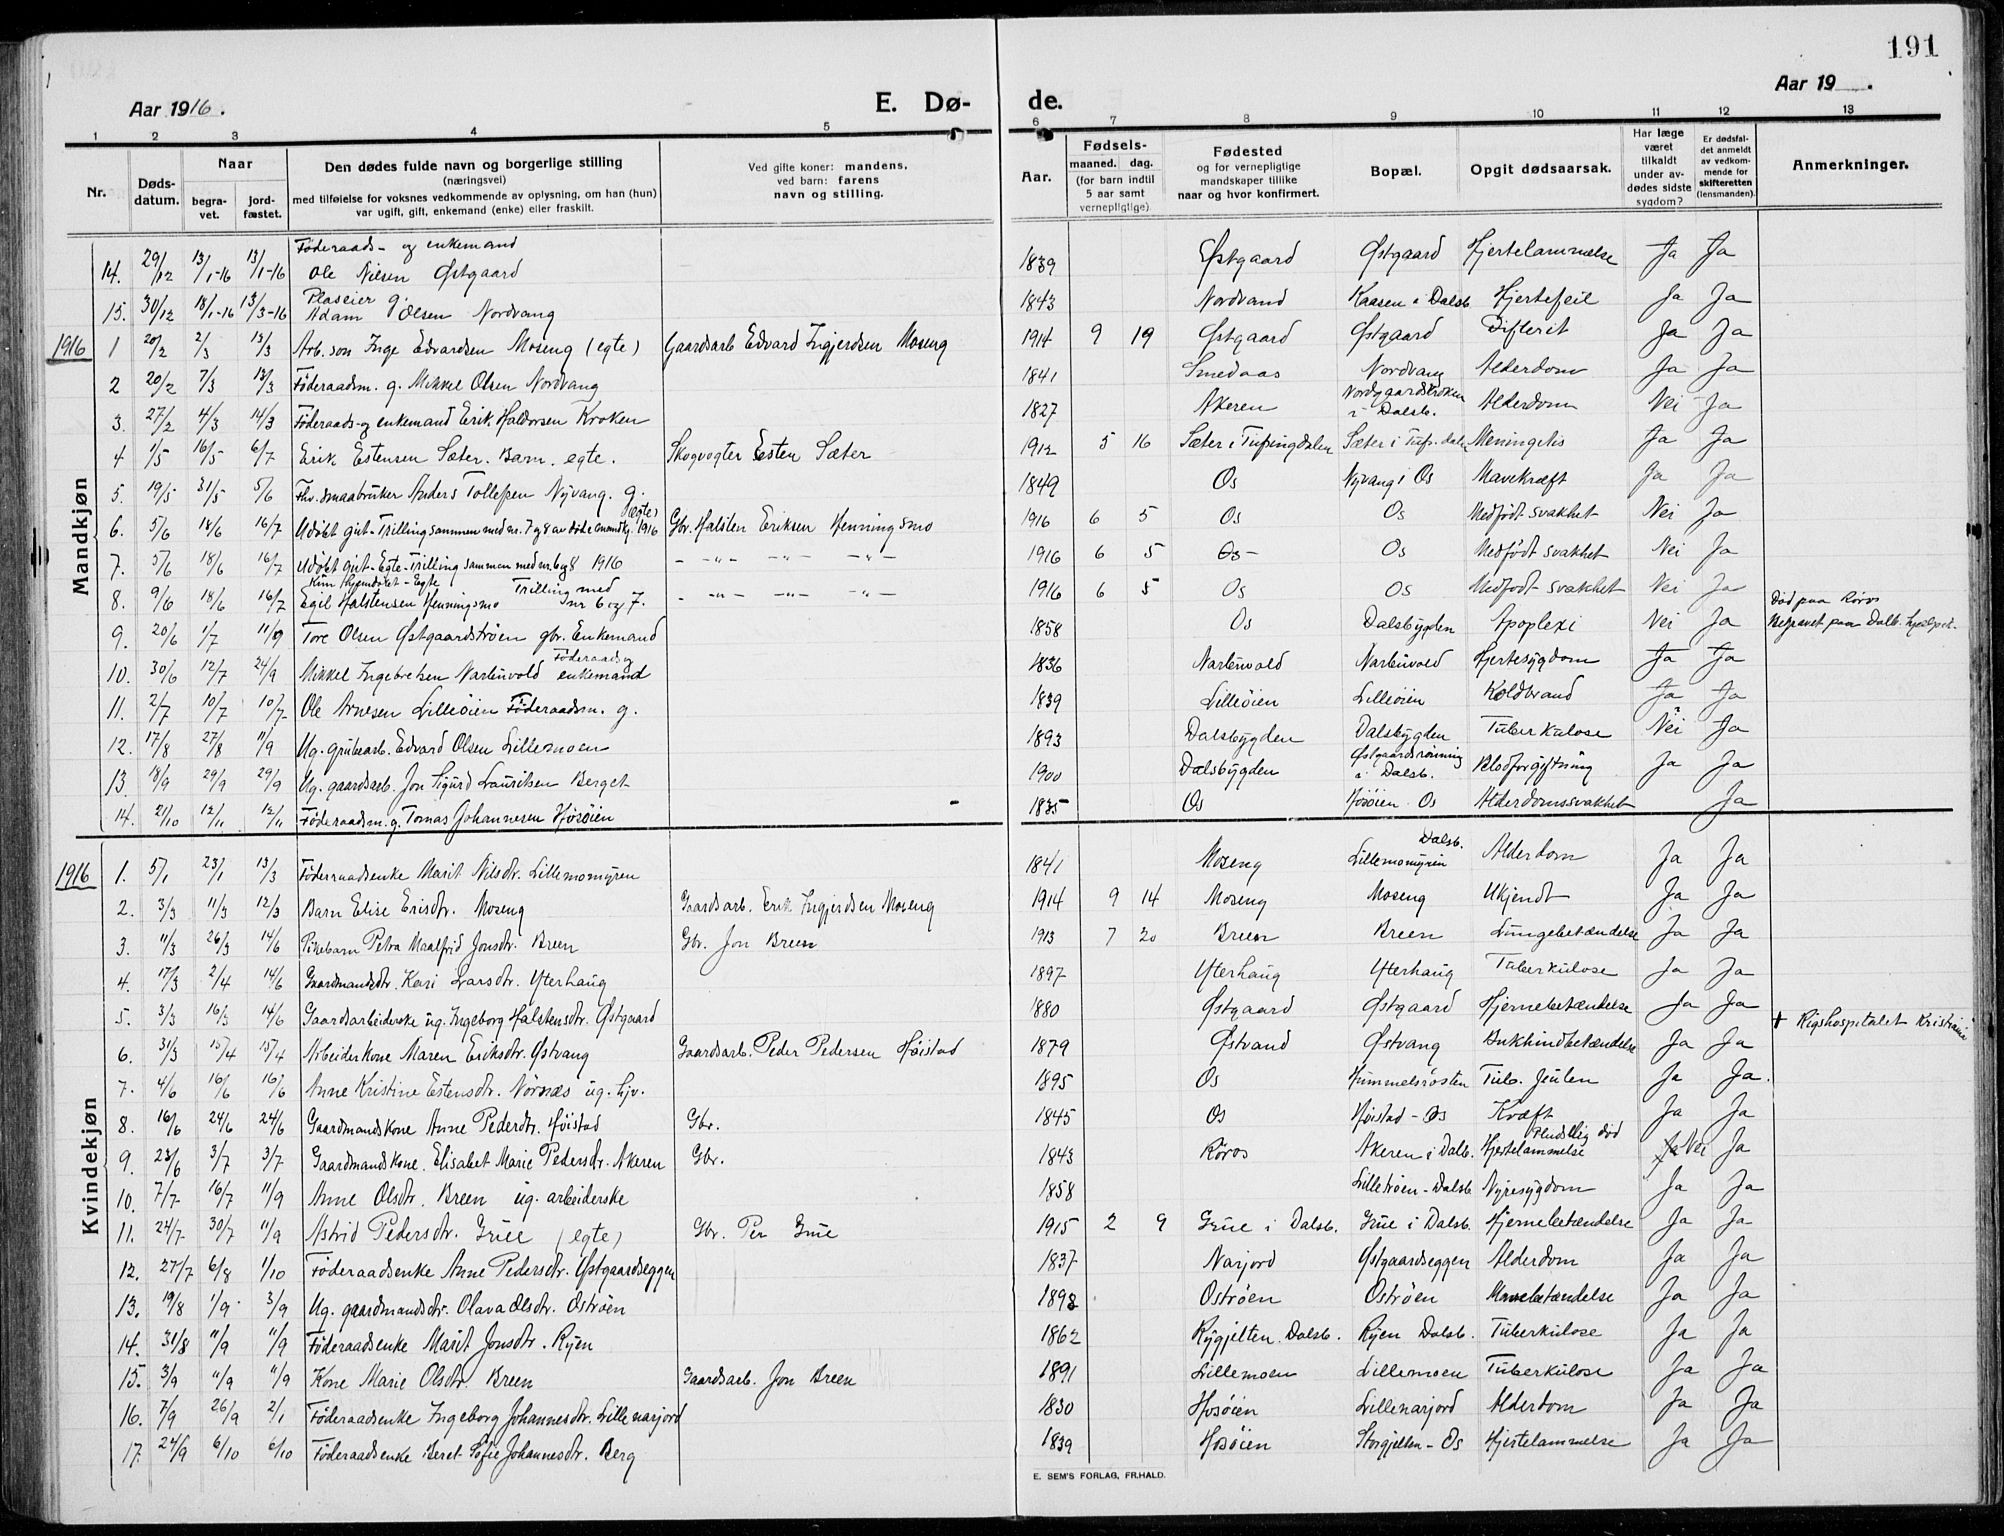 191
Aar 1916.
E. Dø-
de.
Aar 19 .
1 2 3 4 5 6 7 8 9 10 11 12 13
Nr.
Døds-datum.
Naar
begra-vet.
jord-fæstet.
Den dødes fulde navn og borgerlige stilling
(næringsvei)
med tilføielse for voksnes vedkommende av oplysning, om han (hun)
var ugift, gift, enkemand (enke) eller fraskilt.
Ved gifte koner: mandens,
ved barn: farens
navn og stilling.
Aar.
Fødsels-
maaned. dag.
(for barn indtil
5 aar samt
vernepligtige)
Fødested
og for vernepligtige
mandskaper tillike
naar og hvor konfirmert.
Bopæl.
Opgit dødsaarsak.
Har læge
været
tilkaldt
under av-
dødes sidste
sygdom?
Er dødsfal-
det anmeldt
av vedkom-
mende for
skifteretten
(lensmanden).
Anmerkninger.
Mandkjøn
14. 29/12 13/1-16 13/1-16 Føderaads- og enkemand Ole Nilsen Østgaard 1839 Østgaard Østgaard Hjertelammelse Ja Ja
15. 30/12 18/1-16 13/3-16 Plaseier g. Adam Olsen Nordvang 1843 Nordvand Kaasen i Dalsb. Hjertefeil Ja Ja
1916 1 20/2 2/3 13/3 Arb. søn Inge Edvardsen Moseng (egte) Gaardsarb Edvard Ingjerdsen Moseng 1914 9 19 Østgaard Østgaard Difterit Ja Ja
2 20/2 7/3 13/3 Føderaadsm. g. Mikkel Olsen Nordvang 1841 Smedaas Nordvang Alderdom Ja Ja
3. 27/2 4/3 14/3 Føderaads-og enkemand Erik Haldorsen Kroken 1827 Akeren Nordgaardskroken i Dalsb. Alderdom Nei Ja
4 1/5 16/5 6/7 Erik Estensen Sæter. Barn. egte. Skogvogter Esten Sæter 1912 5 16 Sæter i Tufsingdalen Sæter i Tufs.dalen Meningetis Ja Ja
5. 19/5 31/5 5/6 Fhv. smaabruker Anders Tollefsen Nyvang. g. 1849 Os Nyvang i Os Mavekræft Ja Ja
6. 5/6 18/6 16/7 Udøbt gut - Trilling sammen med nr. 7 og 8 av døde mandkj. 1916 (egte) Gbr. Halsten Eriksen Henningsmo 1916 6 5 Os Os Medfødt svakhet Nei Ja
7. 5/6 18/6 16/7 Udøbt gut - Egte - Trilling sammen med nr. 6 og 8 1916 - -"- -"- -"- 1916 6 5 Os Os Medfødt svakhet Nei Ja
8. 9/6 18/6 16/7 Kun hjemdøbt - Egte Egil Halstensen Henningsmo Trilling med nr 6 og 7. - -"- -"- -"- 1916 6 5 Os Os Medfødt svakhet Nei Ja
9. 20/6 1/7 11/9 Tore Olsen Østgaardstrøen gbr. Enkemand 1858 Os Dalsbygden Apoplexi Nei Ja Død paa Røros Begravet paa Dalb.
10. 30/6 12/7 24/9 Mikkel Ingebretsen Narbuvold Føderaads og enkemand 1836 Narbuvold Narbuvold Hjertesygdom Ja Ja
11. 2/7 10/7 10/7 Ole Arnesen Lilleøien Føderaadsm. g. 1839 Lilleøien Lilleøien Koldbrand Ja Ja
12. 17/8 27/8 11/9 Ug. grubearb. Edvard Olsen Lillemoen 1893 Dalsbygden Dalsbygden Tuberkulose Nei Ja
13. 18/9 29/9 29/9 Ug. gaardsarb. Jon Sigurd Lauritsen Berget 1900 Dalsbygden Østgaardsrønning i Dalsb. Blodforgiftning Ja Ja
14. 21/10 12/11 12/11 Føderaadsm. g. Tomas Johannesen Hosøien 1835 Os Hosøien - Os Alderdomssvakhet Ja
Kvindekjøn
1916 1. 5/1 23/1 13/3 Føderaadsenke Marit Nilsdtr. Lillemomyren 1841 Moseng Lillemomyren Dalsb. Alderdom Ja Ja
2. 3/3 11/3 12/3 Barn Elise Erisdtr. Moseng Gaardsarb. Erik Ingjerdsen Moseng 1914 9 14 Moseng Moseng Ukjendt Ja Ja
3. 11/3 26/3 14/6 Pikebarn Petra Maalfrid Jonsdtr. Breen Gbr. Jon Breen 1913 7 20 Breen Breen Lungebetændelse Ja Ja
4. 17/3 2/4 14/6 Gaardmandsdtr. Kari Larsdtr. Ytterhaug 1897 Ytterhaug Ytterhaug Tuberkulose Ja Ja
5. 3/3 16/3 14/6 Gaardsarbeiderske ug. Ingeborg Halstensdtr. Østgaard 1880 Østgaard Østgaard Hjernebetændelse Ja Ja
6. 31/3 15/4 15/4 Arbeiderkone Maren Eriksdtr. Østvang Gaardsarb. Peder Pedersen Høistad 1879 Østvand Østvang Bukhindbetændelse Ja Ja + Rigshospitalet Kristiania
7. 4/6 16/6 16/6 Anne Kristine Estensdtr. Nørnæs ug. hjv. 1895 Os Hummelsrosten Tub. Ja Ja.
8. 16/6 24/6 24/6 Gaardmandskone Anne Pedersdtr. Høistad Gbr. 1845 Os Høistad - Os Kræft Ja Ja
9. 23/6 3/7 3/7 Gaardmandskone. Elisabet Marie Pedersdtr. Akeren Gbr. 1843 Röros Akeren i Dalb. Hjertelammelse Pludselig død Ja Nei Ja
10. 7/7 16/7 11/9 Anne Olsdtr. Breen ug. arbeiderske 1858 Lilletrøen - Dalsb Nyresygdom Ja Ja
11. 24/7 30/7 11/9 Astrid Pedersdtr. Grue (egte) Gbr. Per Grue 1915 2 9 Grue i Dalsb. Grue i Dalsb. Hjernebetændelse Ja Ja
12. 27/7 6/8 1/10 Føderaadsenke Anne Pedersdtr. Østgaardseggen 1837 Narjord Østgaardseggen Alderdom Ja Ja
13. 19/8 1/9 3/9 Ug. gaardmandsdtr. Olava Olsdtr. Ostrøen 1892 Ostrøen Ostrøen Mavebetændelse Ja Ja
14. 31/8 11/9 11/9 Føderaadsenke Marit Jonsdtr. Ryen 1862 Rygjelten. Dalsb. Ryen Dalsb. Tuberkulose Ja Ja
15. 3/9 11/9 11/9 Kone Marie Olsdtr. Breen Gaardsarb. Jon Breen 1891 Lillemoen Lillemoen Tuberkulose Ja Ja
16. 7/9 26/9 2/1 Føderaadsenke Ingeborg Johannesdtr. Lillenarjord 1830 Hosøien Lillenarjord Alderdom Ja Ja
17. 24/9 6/10 6/10 Føderaadsenke Beret Sofie Johannesdtr. Berg 1839 Hosøien Storgjelten - Os Hjertelammelse Ja Ja
E. SEM'S FORLAG, FR.HALD.